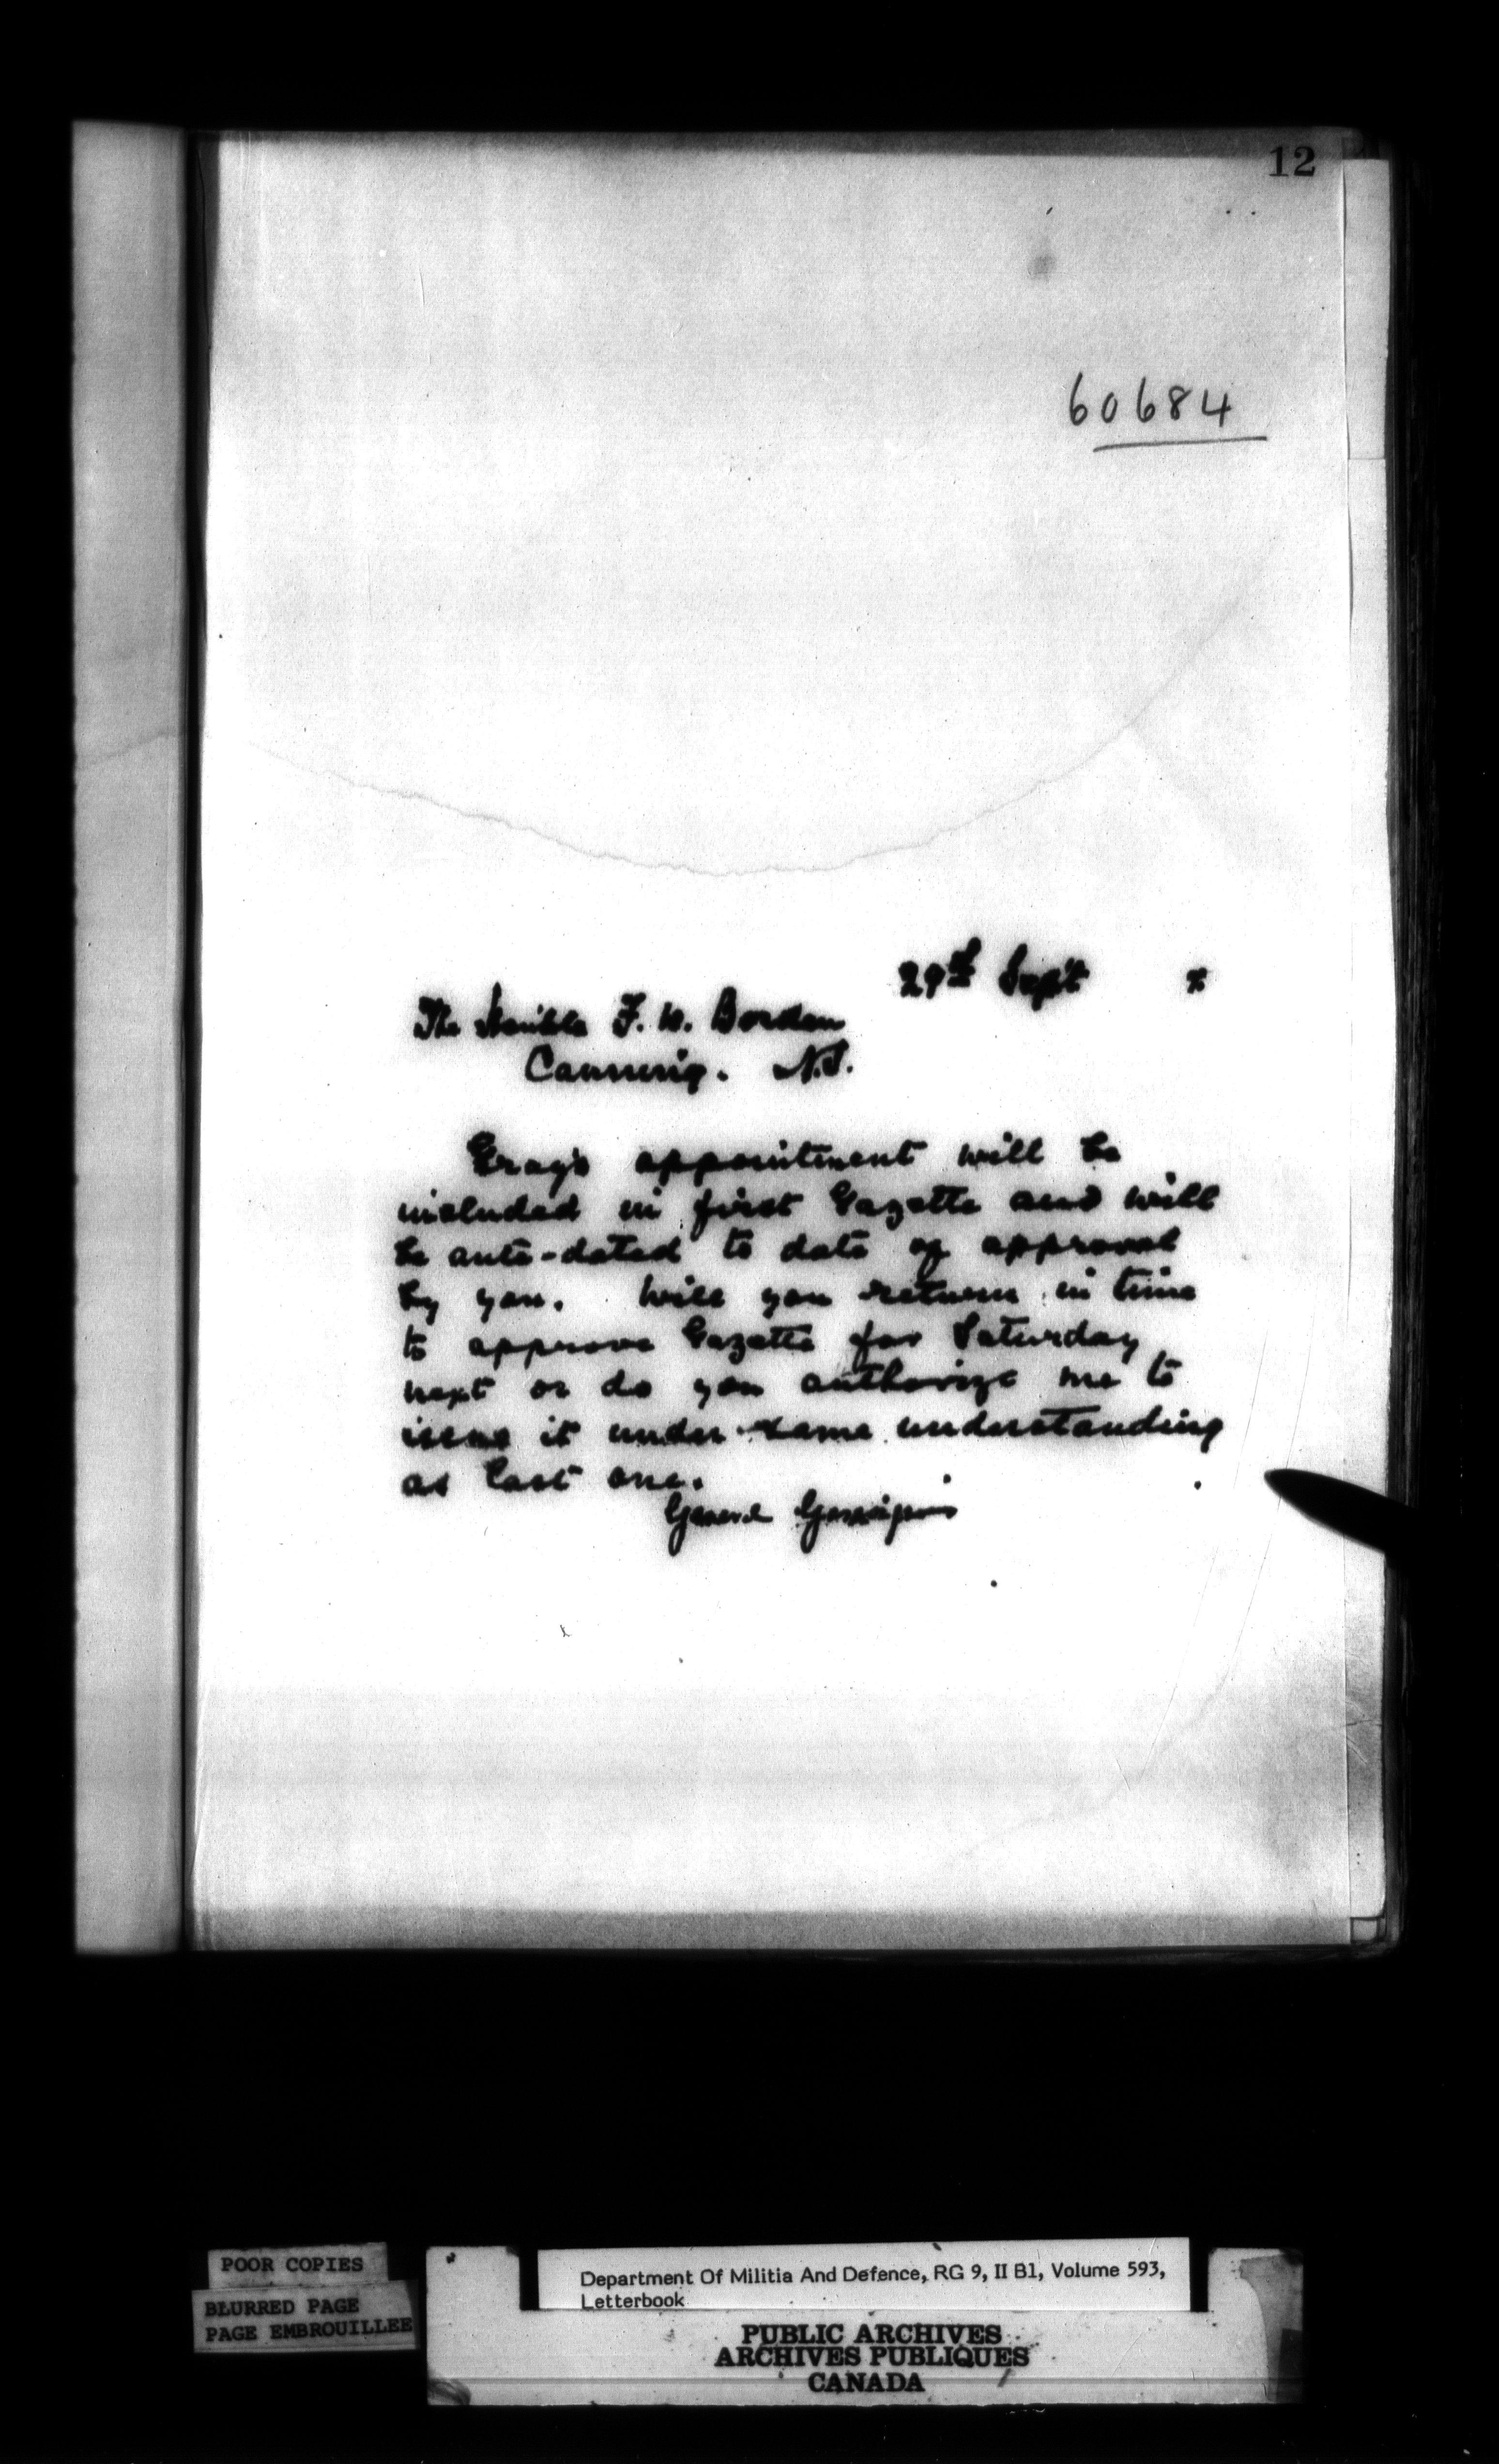 12
60684
29th Sept
The Honible F. W. Borden
Canning. N.S.
Gray's appointment will be
included in first Gazette and will
be ante-dated to date of approval
by you. Will you return in time
to approve Gazette for Saturday
next or do you authorize me to
issue it under same understanding
as last one.
General Gascoigne
POOR COPIES
BLURRED PAGE
PAGE EMBROUILLEE
Department Of Militia And Defence, RG 9, II B1, Volume 593,
Letterbook
PUBLIC ARCHIVES
ARCHIVES PUBLIQUES
CANADA